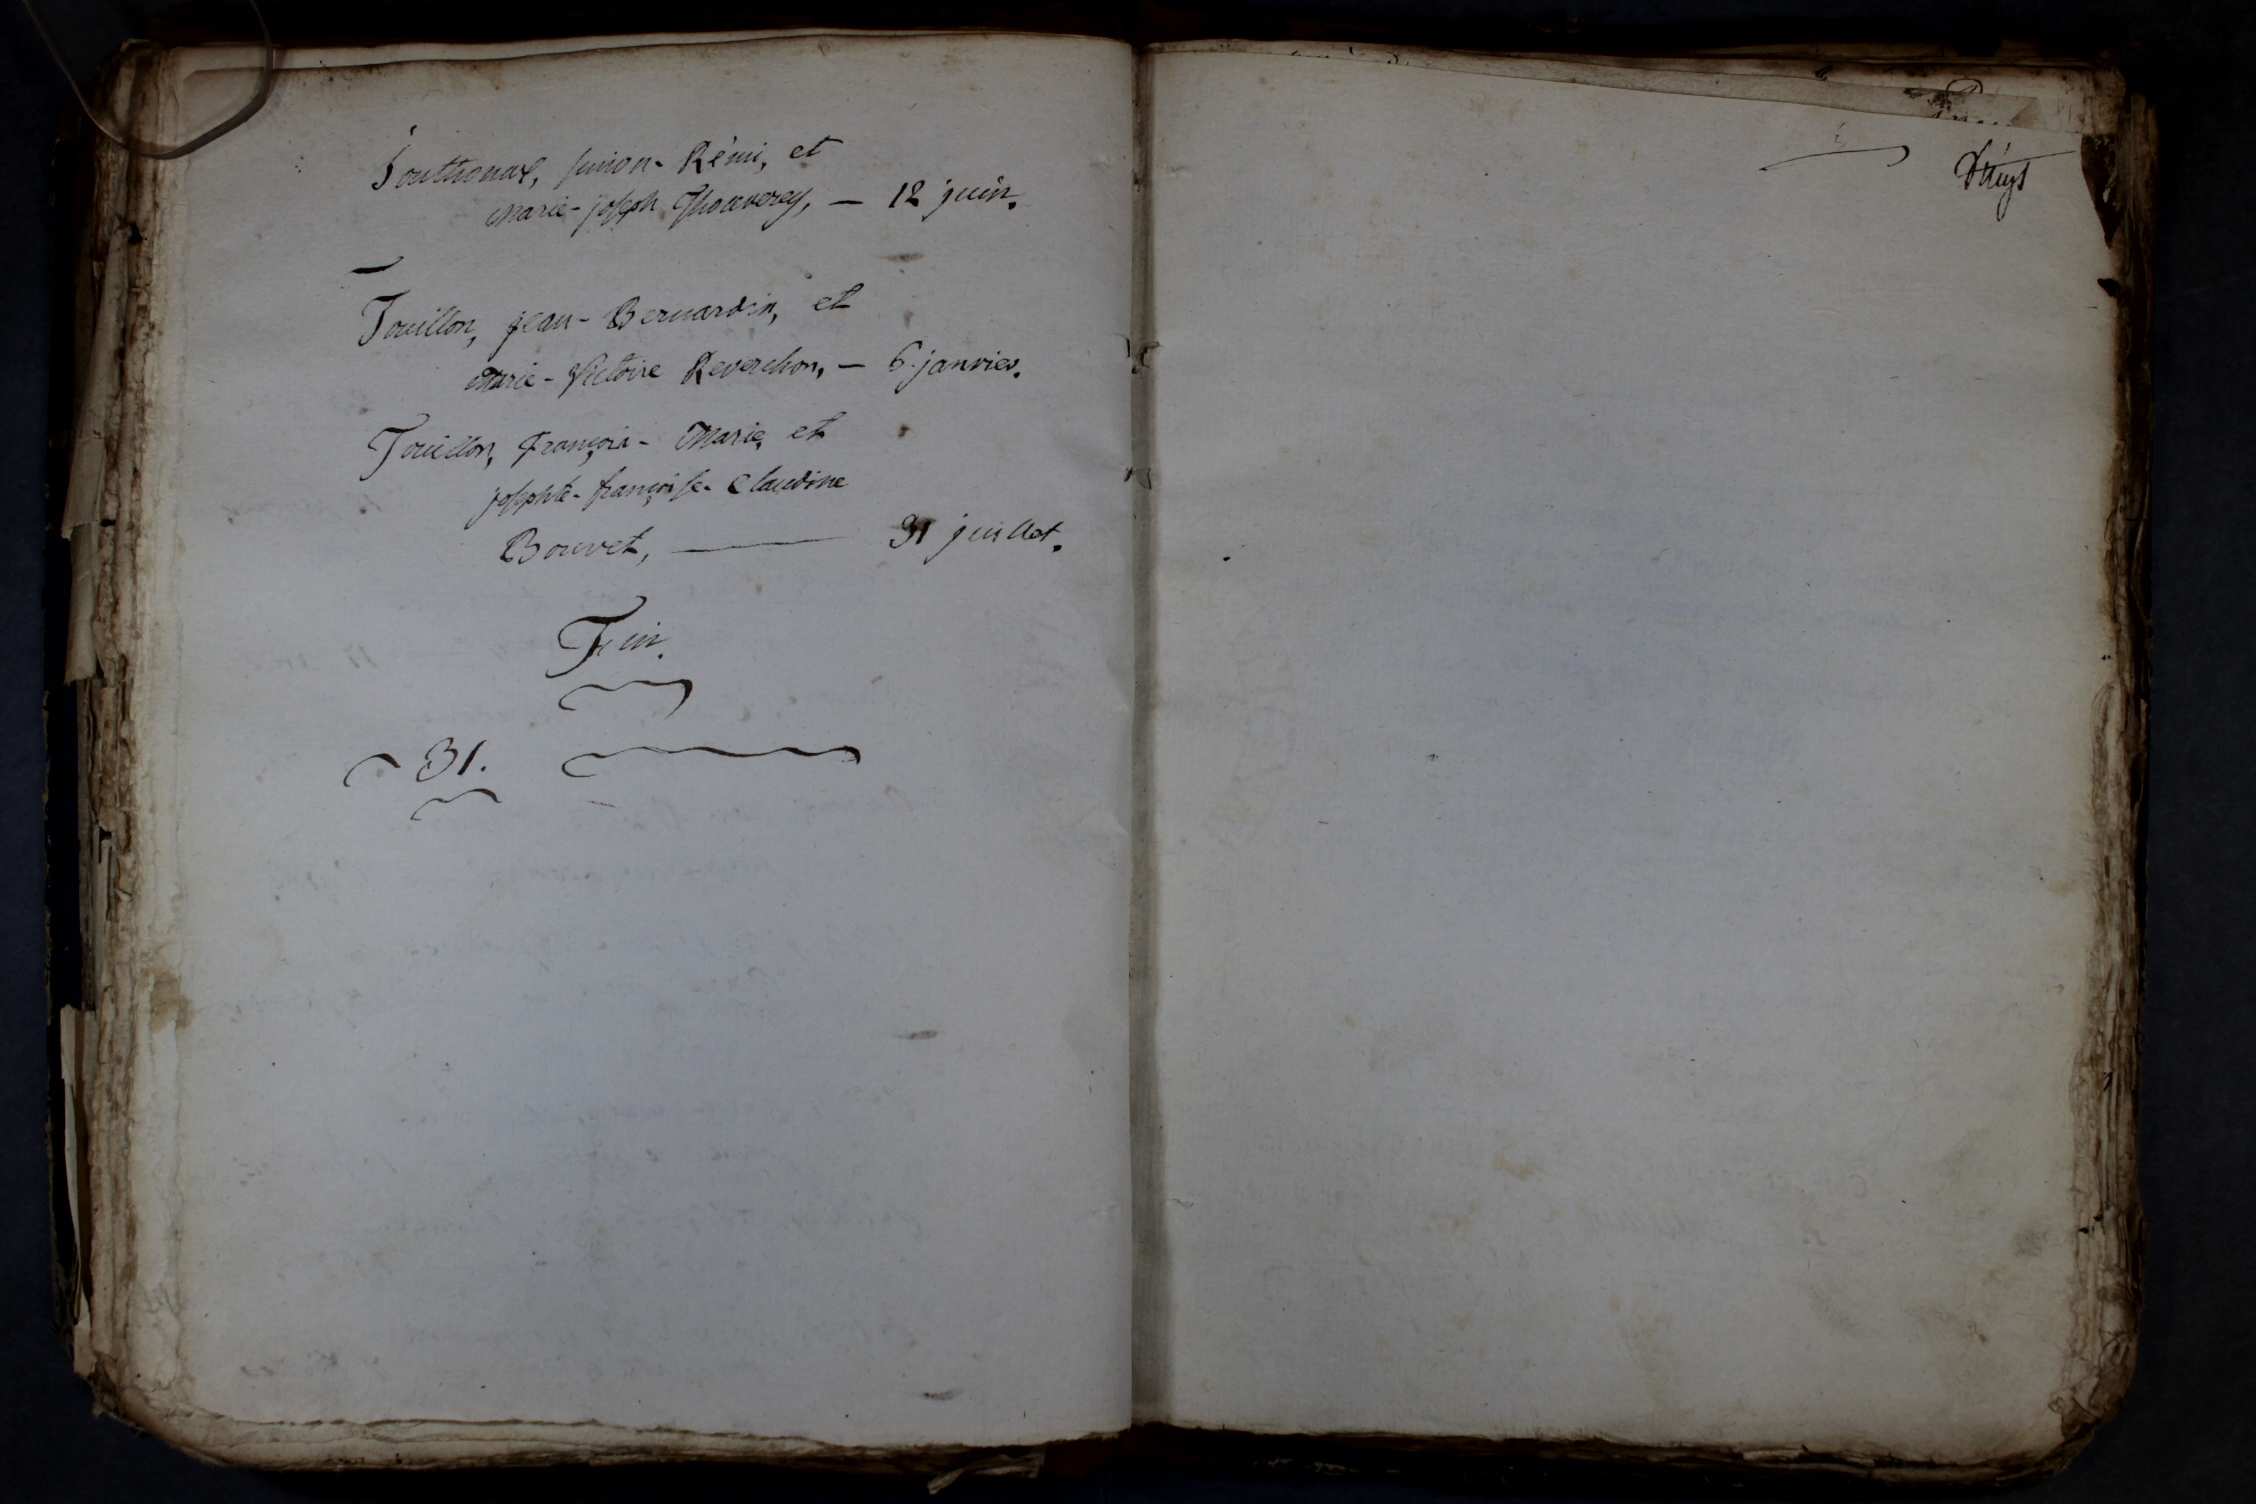 Sonthonax, simon-Rémi, et
Marie-joseph Thouverey, — 12 juin.
Touillon, jean-Bernardin, et
Marie-Victoire Reverchon, — 6. janvier.
Touillon, françois-Marie, et
josephte-françoise-Claudine
Bouvet, — 31 juillet.
Fin.
31.